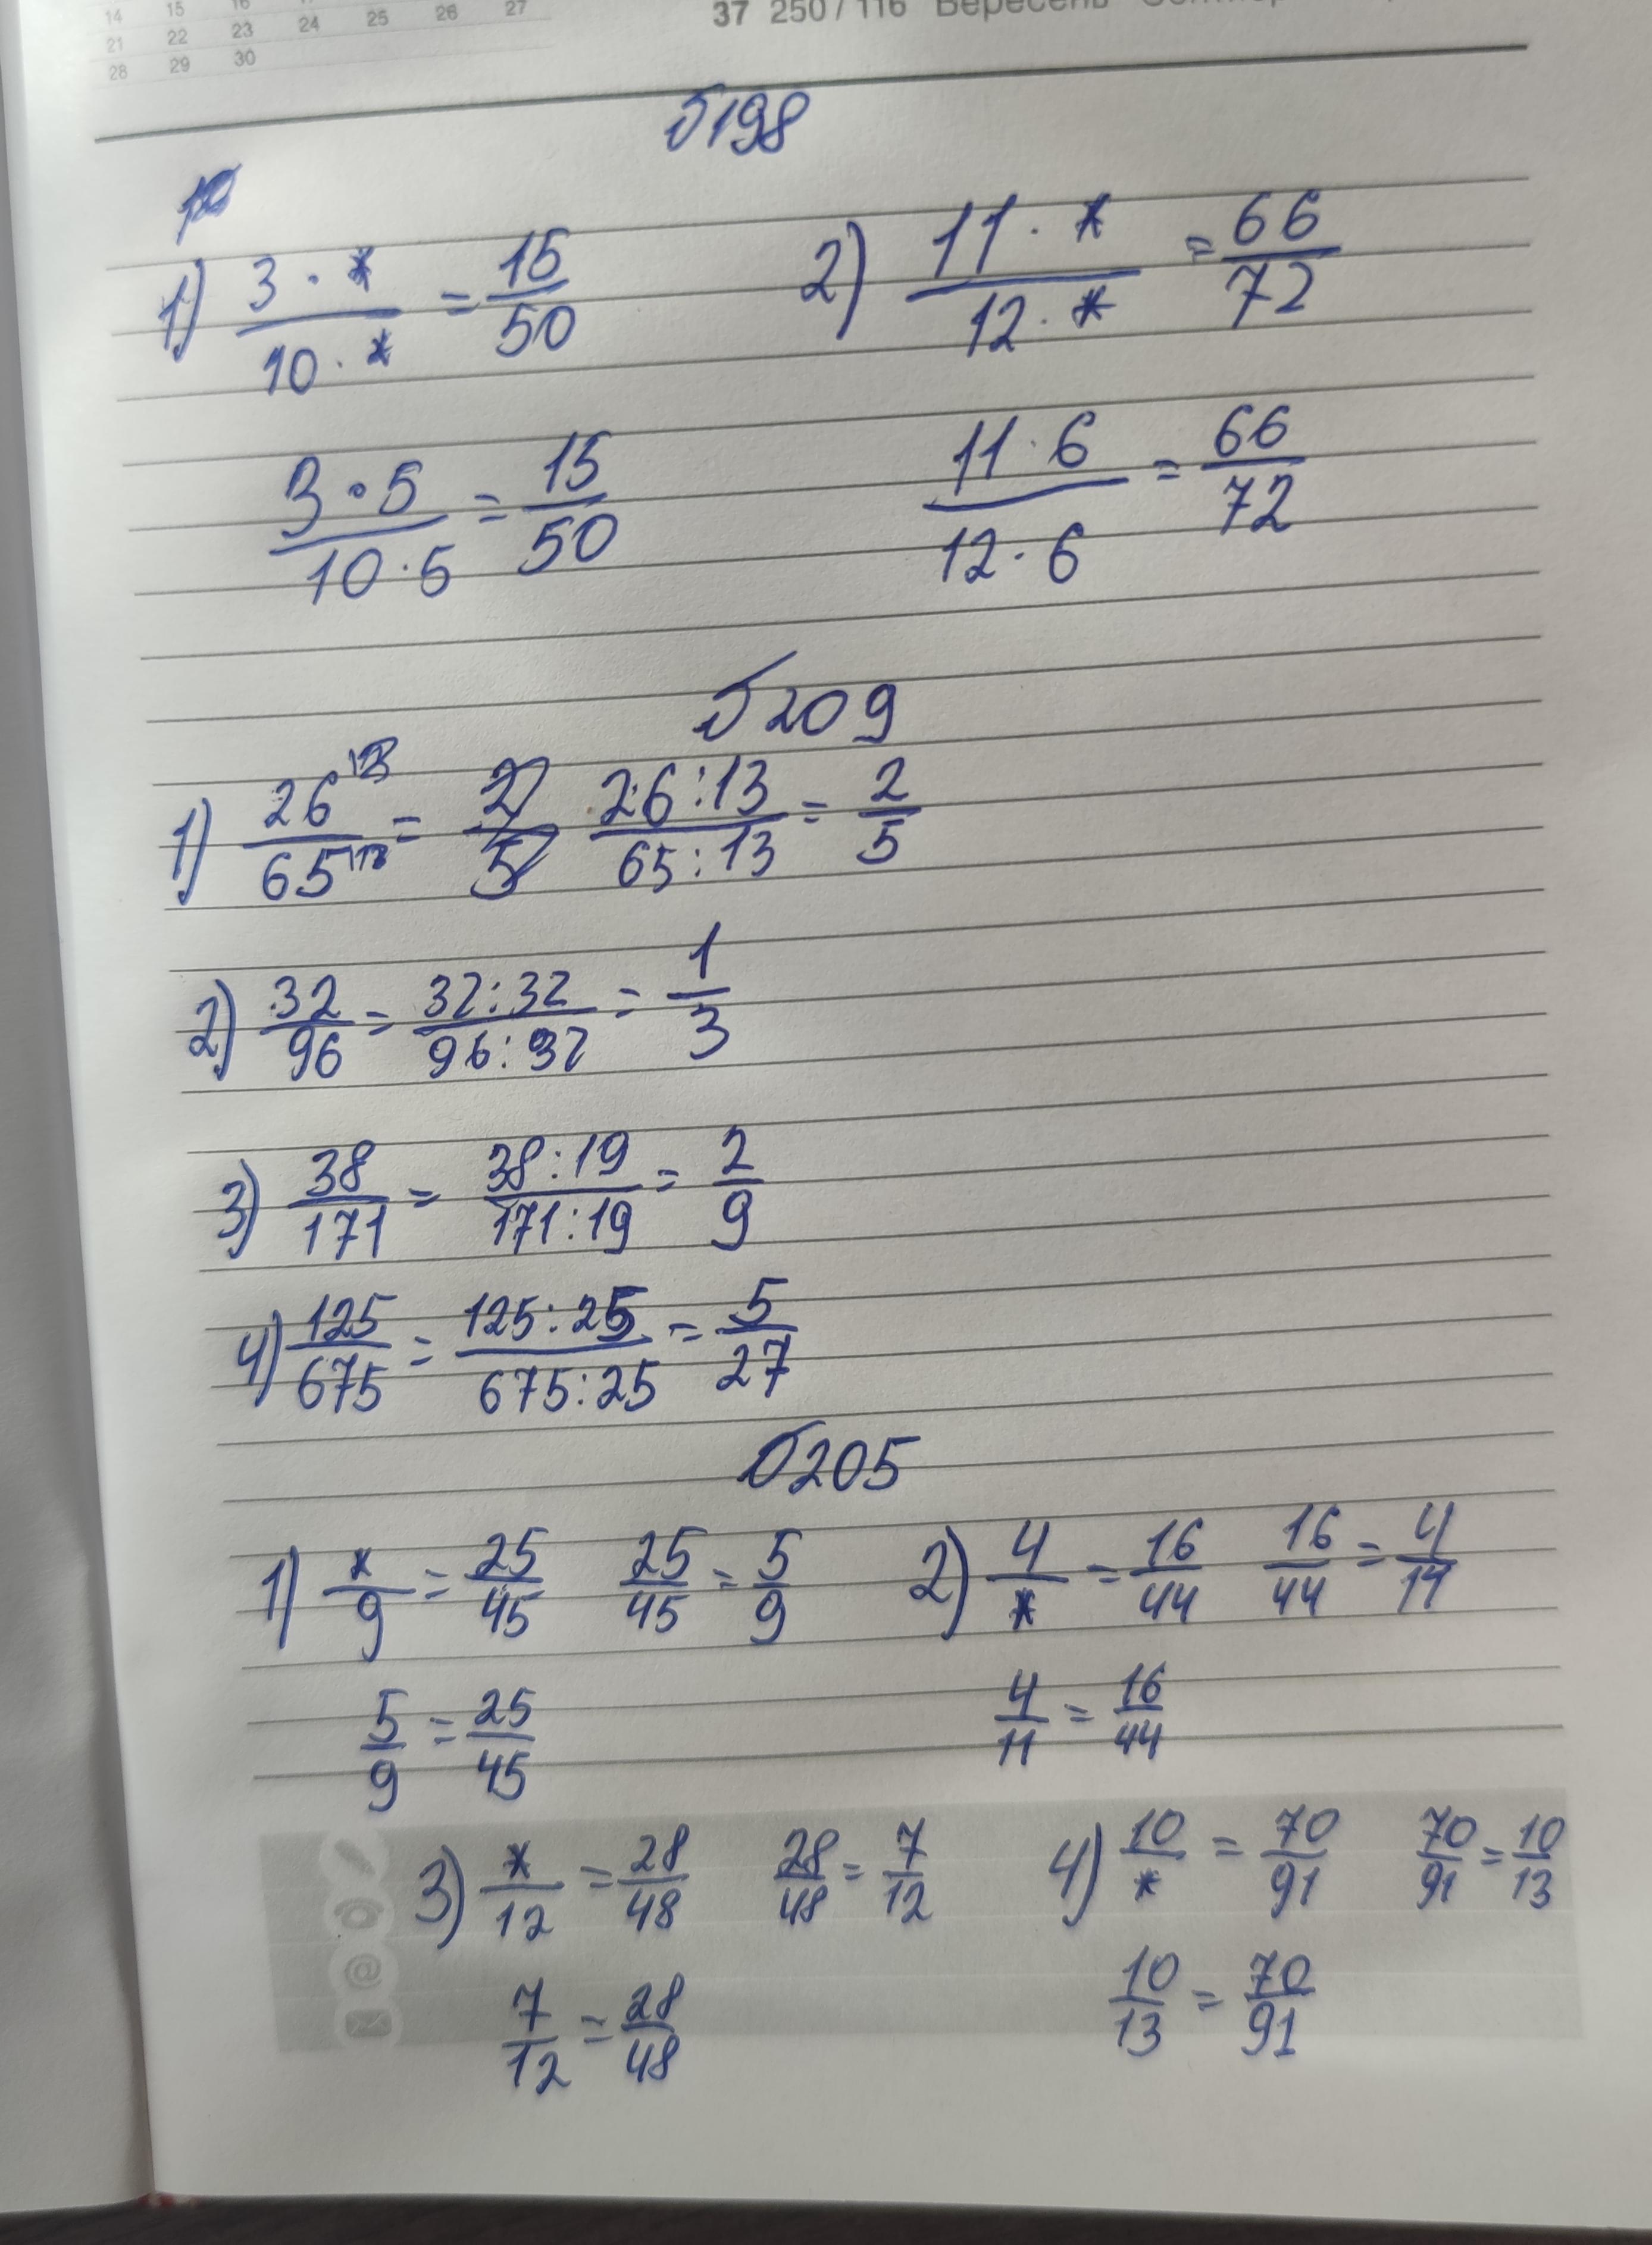 14 15 16
21 22 23 24 25 26 27
28 29 30
37 250/116 Вересень
198
1) 3 · * / 10 · * = 15/50 2) 11 · * / 12 · * = 66/72
3 · 5 / 10 · 5 = 15/50 11 · 6 / 12 · 6 = 66/72
209
1) 26/65 = 26:13 / 65:13 = 2/5
2) 32/96 = 32:32 / 96:32 = 1/3
3) 38/171 = 38:19 / 171:19 = 2/9
4) 125/675 = 125:25 / 675:25 = 5/27
205
1) */9 = 25/45 25/45 = 5/9 2) 4/* = 16/44 16/44 = 4/11
5/9 = 25/45 4/11 = 16/44
3) */12 = 28/48 28/48 = 7/12 4) 10/* = 70/91 70/91 = 10/13
7/12 = 28/48 10/13 = 70/91